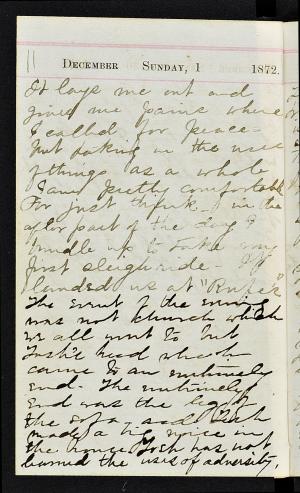 11
December Sunday, 1 1872.
It lays me out and
gives me pains where
I called for peace -
but taking in the uses
of things as a whole
I am pretty comfortable
For just think - in the
after part of the day I
bundle up to take my
first sleighride - It
landed us at "Rufes"
The event of the evening
was not church which
we all went to but
head
came to an untimely
end - The untimely
end was the leg of
the sofa, and Tosh
made a big noise in
the house Tosh has not
learned the uses of adversity,